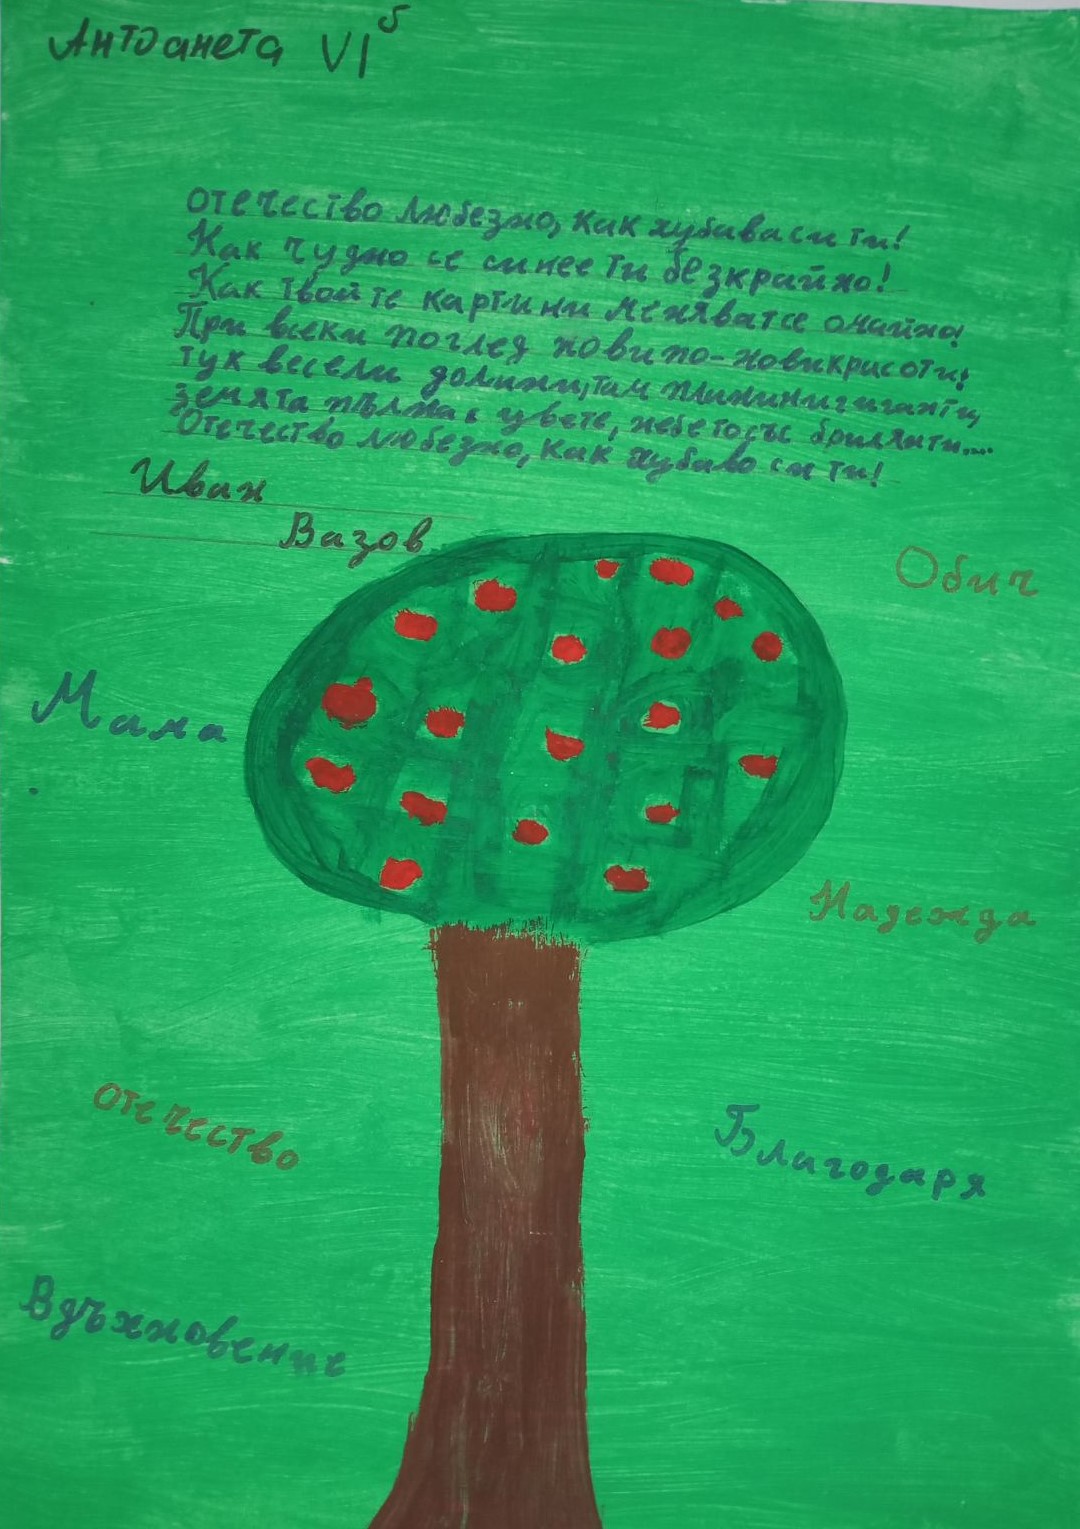 Антоанета VI б
Отечество любезно, как хубава си ти!
Как чудно се синее ти безкрайно!
Как твоите картини меняват се омайно!
При всеки поглед нови по-нови красоти!
тук весели долини, там планини гиганти,
земята пълна с цвете, небето със брилянти....
Отечество любезно, как хубаво си ти!
Иван
Вазов
Обич
Мама
Надежда
Отечество
Благодаря
Вдъхновение